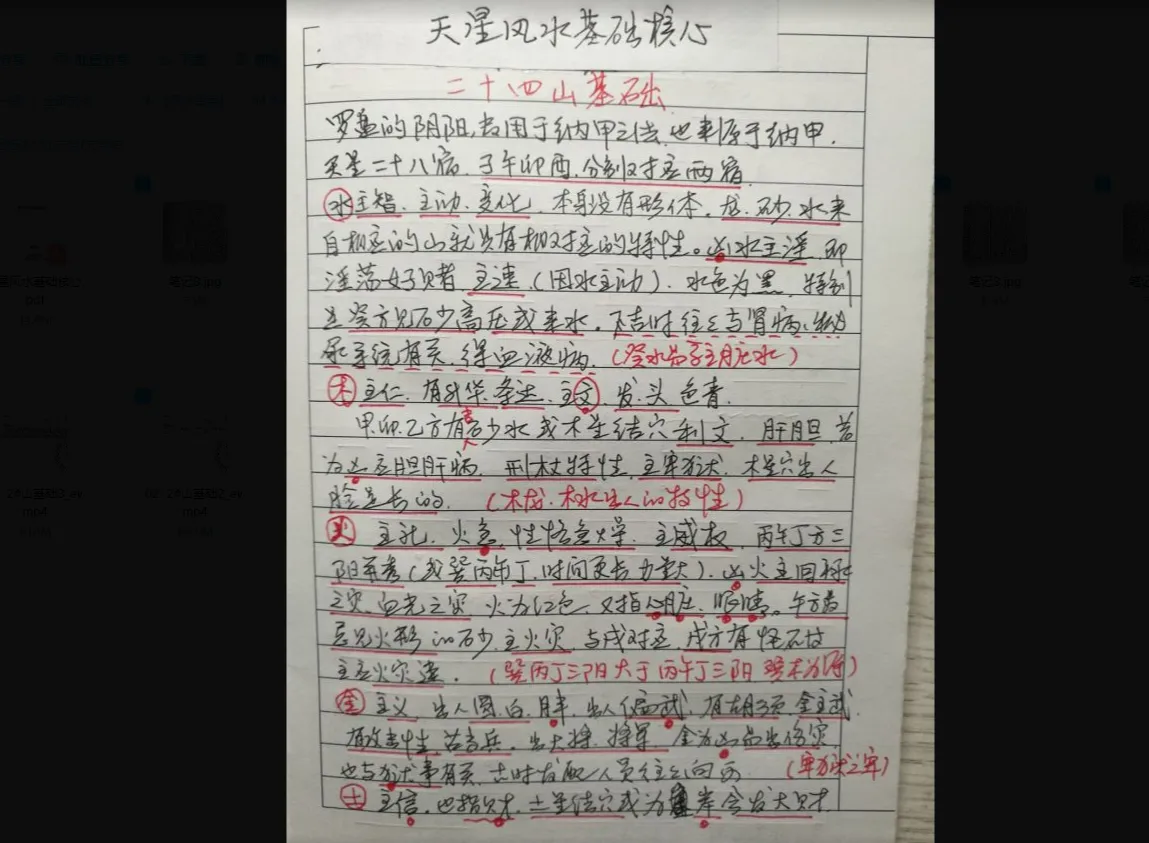 天星风水基础核心
二十四山基础
罗盘的阴阳,专用于纳甲之法,也来源于纳甲.
天星二十八宿,子午卯酉,分别对应两宿
水主智.主动.变化,本身没有形体.龙.砂.水来
自相应的山就具有相对应的特性。凶水主淫,即
淫荡好赌,主速,(因水主动).水色为黑,特别
是癸方见砂高压或来水,不吉时往往与肾病、泌
尿系统有关,得血液病.(癸水为肾主肚水)
木主仁.有升华.条达.主文.发.头 色青.
甲.卯.乙方有吉砂水或木星结穴利文.肝胆,若
为凶应胆肝病.刑杖特性,主牢狱.木星穴出人
脸是长的.(木龙.木水出人的特性)
火 主礼,火急,性格急.主威权,丙午丁方三
阳带秀(或巽丙午丁,时间更长力量大).凶火主回禄
之灾,血光之灾,火为红色,又指心脏.眼睛。午方最
忌见火形的砂,主火灾,与戌对应,戌方有怪石也
主应火灾.(巽丙丁三阳大于丙午丁三阳 巽木为)
金 主义,出人圆.白.胖,出人,有胡须.金主武.
有攻击性,古言兵,出大将.将军,金为凶易出伤灾.
也与狱事有关,古时发配人员往往向西 (牢狱之牢)
土 主信,也指财,土星结穴或为岸会发大财
笔记3.jpg
笔记2.jpg
24山基础2
mp4
mp4